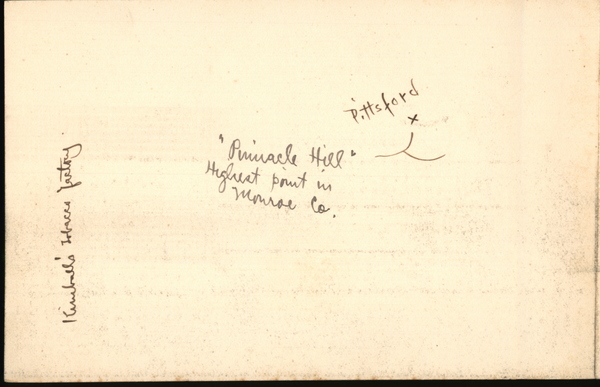 Pittsford
x
"Pinnacle Hill"
Highest point in
Monroe Co.
Kimball's tobacco factory.